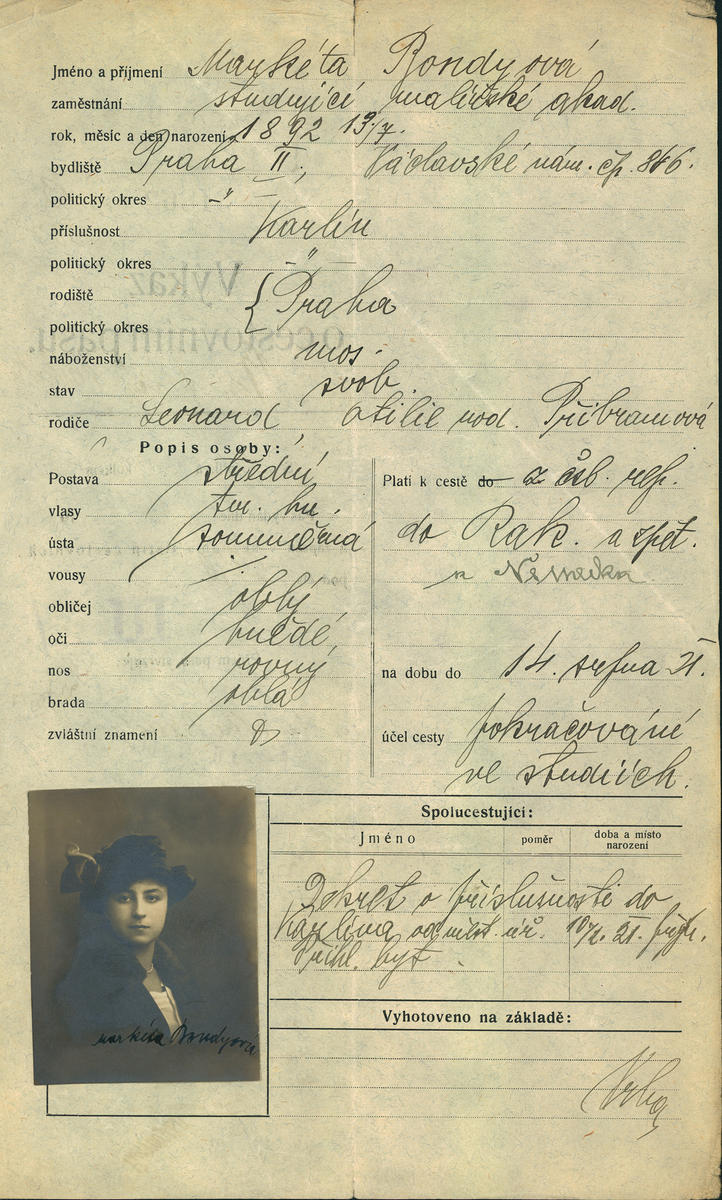 Jméno a příjmení Markéta Bondyová
zaměstnání studující malířské akad.
rok, měsíc a den narození 1892 13/7.
bydliště Praha II, Václavské nám. čp. 846.
politický okres -"-
příslušnost Karlín
politický okres "
rodiště { Praha
politický okres
náboženství mos.
stav svob.
rodiče Leonard Otilie rod. Přibramová
Popis osoby:
Postava střední
vlasy tm. hn.
ústa souměrná
vousy ./.
obličej oblý
oči hnědé
nos rovný
brada oblá
zvláštní znamení
Platí k cestě do z čsl. rep.
do Rak. a zpět.
a Německa
na dobu do 14. srpna 21.
účel cesty pokračování
ve studiích.
Spolucestující:
Jméno poměr doba a místo narození
Dekret o příslušnosti do
Karlína od
Přihl. byt.
Vyhotoveno na základě:
Markéta Bondyová
Výkaz
o cestovním pasu.